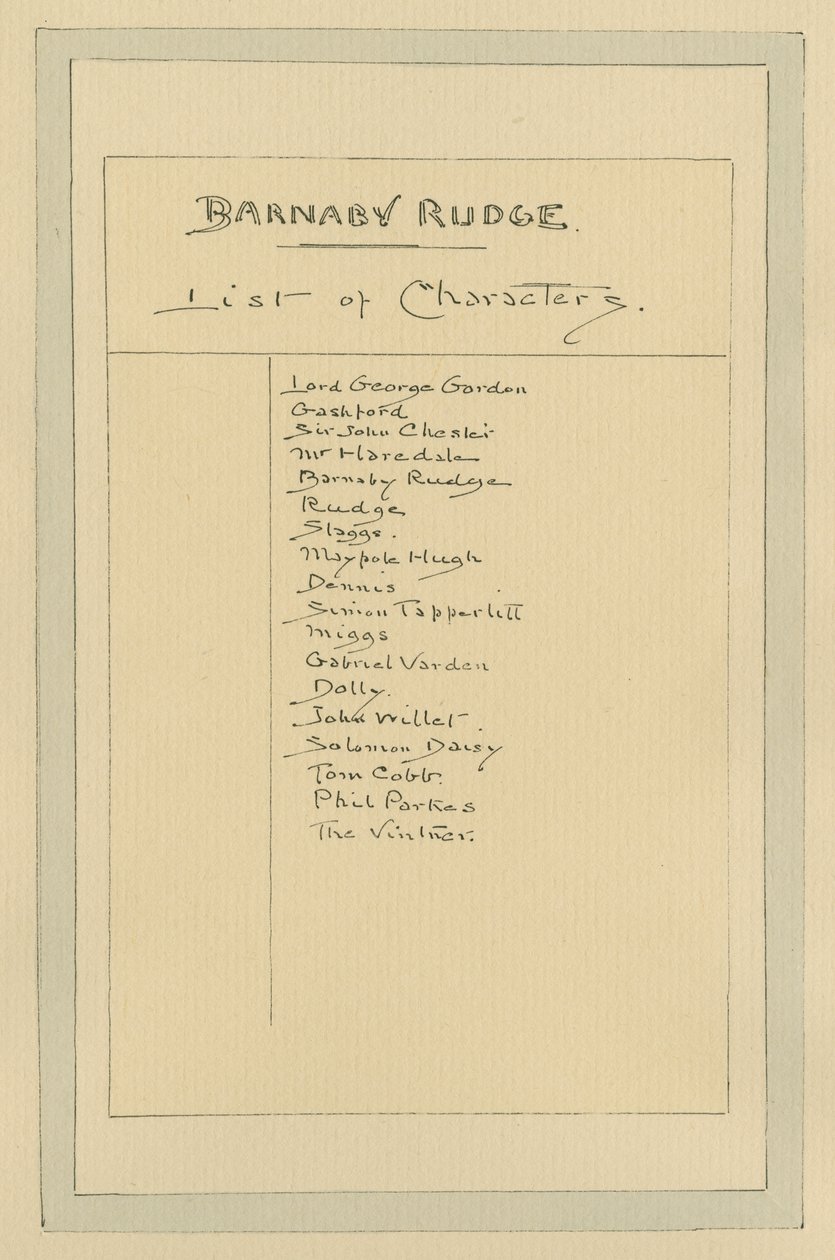 BARNABY RUDGE.
List of Characters.
Lord George Gordon
Gashford
Sir John Chester
Mr Haredale
Barnaby Rudge
Rudge
Slaggs.
Maypole Hugh
Dennis
Simon Tappertitt
Miggs
Gabriel Varden
Dolly.
John Willet.
Solomon Daisy
Tom Cobb.
Phil Parkes
The Vintner.